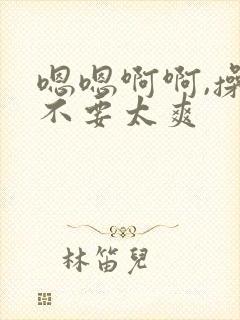 嗯嗯啊啊,操
不要太爽
林笛兒